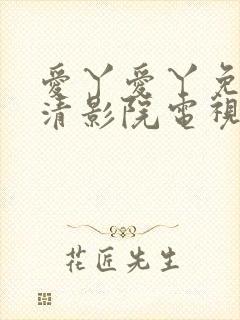 愛丫愛丫免
清影院電視
花匠先生